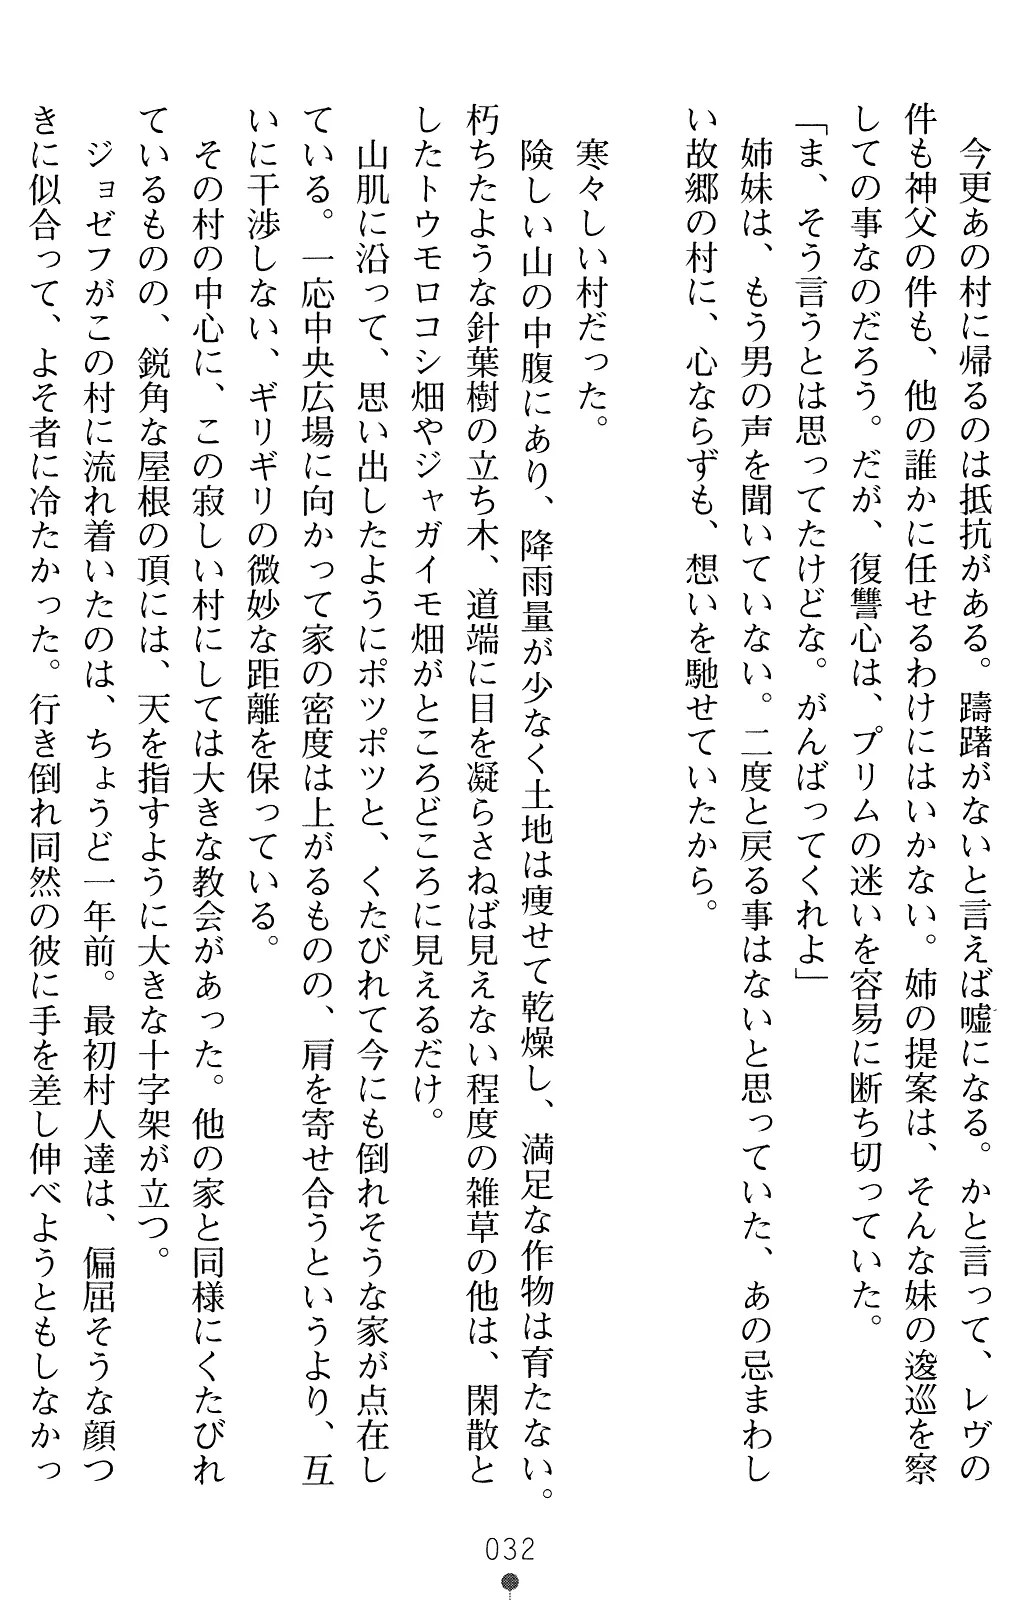 今更あの村に帰るのは抵抗がある。躊躇がないと言えば嘘になる。かと言って、レヴの
件も神父の件も、他の誰かに任せるわけにはいかない。姉の提案は、そんな妹の逡巡を察
しての事なのだろう。だが、復讐心は、プリムの迷いを容易に断ち切っていた。
「ま、そう言うとは思ってたけどな。がんばってくれよ」
姉妹は、もう男の声を聞いていない。二度と戻る事はないと思っていた、あの忌まわし
い故郷の村に、心ならずも、想いを馳せていたから。
寒々しい村だった。
険しい山の中腹にあり、降雨量が少なく土地は痩せて乾燥し、満足な作物は育たない。
朽ちたような針葉樹の立ち木、道端に目を凝らさねば見えない程度の雑草の他は、閑散と
したトウモロコシ畑やジャガイモ畑がところどころに見えるだけ。
山肌に沿って、思い出したようにポツポツと、くたびれて今にも倒れそうな家が点在し
ている。一応中央広場に向かって家の密度は上がるものの、肩を寄せ合うというより、互
いに干渉しない、ギリギリの微妙な距離を保っている。
その村の中心に、この寂しい村にしては大きな教会があった。他の家と同様にくたびれ
ているものの、鋭角な屋根の頂には、天を指すように大きな十字架が立つ。
ジョゼフがこの村に流れ着いたのは、ちょうど一年前。最初村人達は、偏屈そうな顔つ
きに似合って、よそ者に冷たかった。行き倒れ同然の彼に手を差し伸べようともしなかっ
032